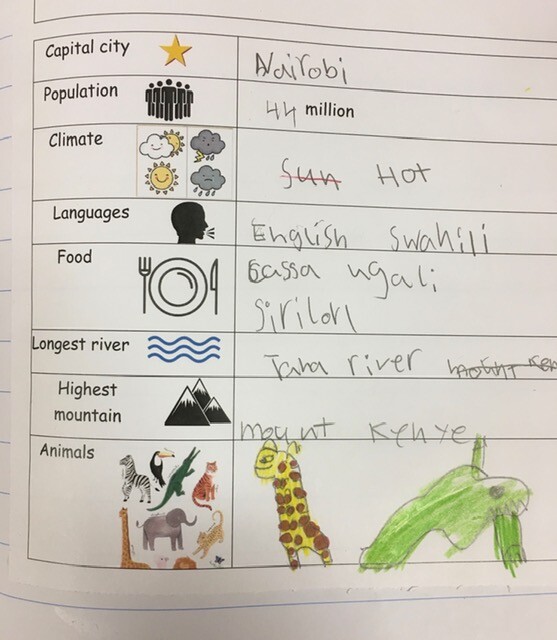 Capital city
Nairobi
Population
44 million
Climate
Sun Hot
Languages
English Swahili
Food
ugali
Longest river
Tana river mount Ken
Highest
mountain
mount Kenye
Animals